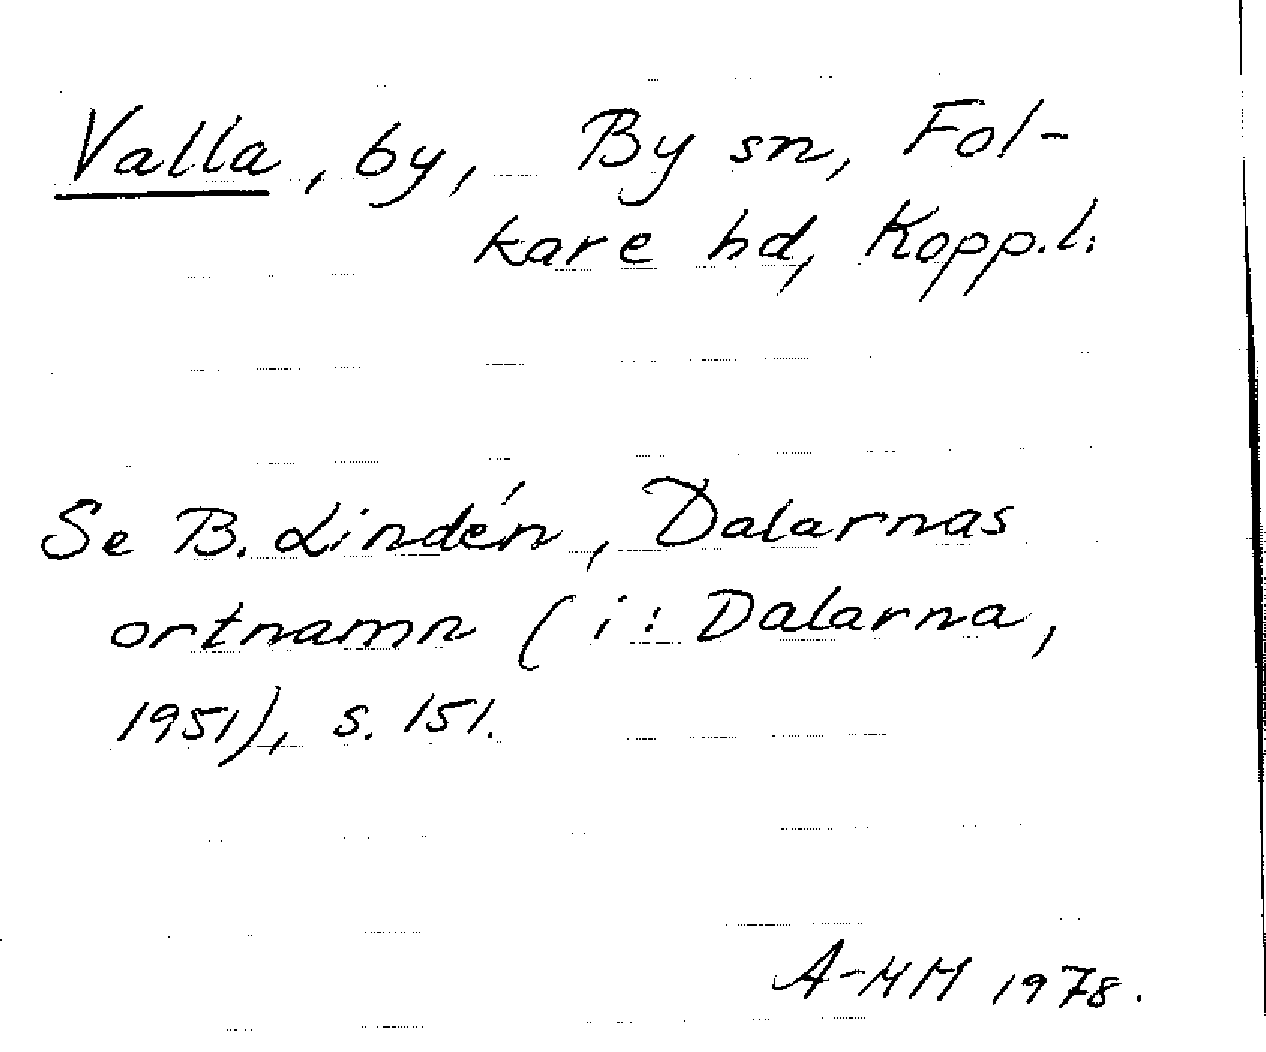 Valla, by, By sn, Fol-
kare hd, Kopp.l.
Se B. Lindén, Dalarnas
ortnamn (i: Dalarna,
1951), s. 151.
A-MM 1978.